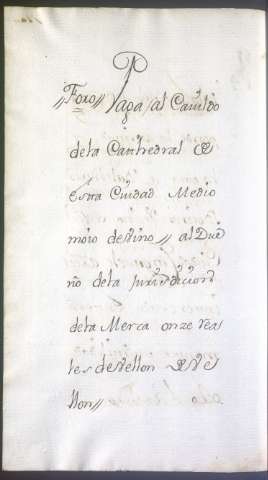 "Foro" Paga al Cavildo
dela Cathedral de
Estta Ciudad Medio
moio de vino, al Due
ño dela Jurisdiccion
dela Merca onze rea
les de vellon de ve
llon"